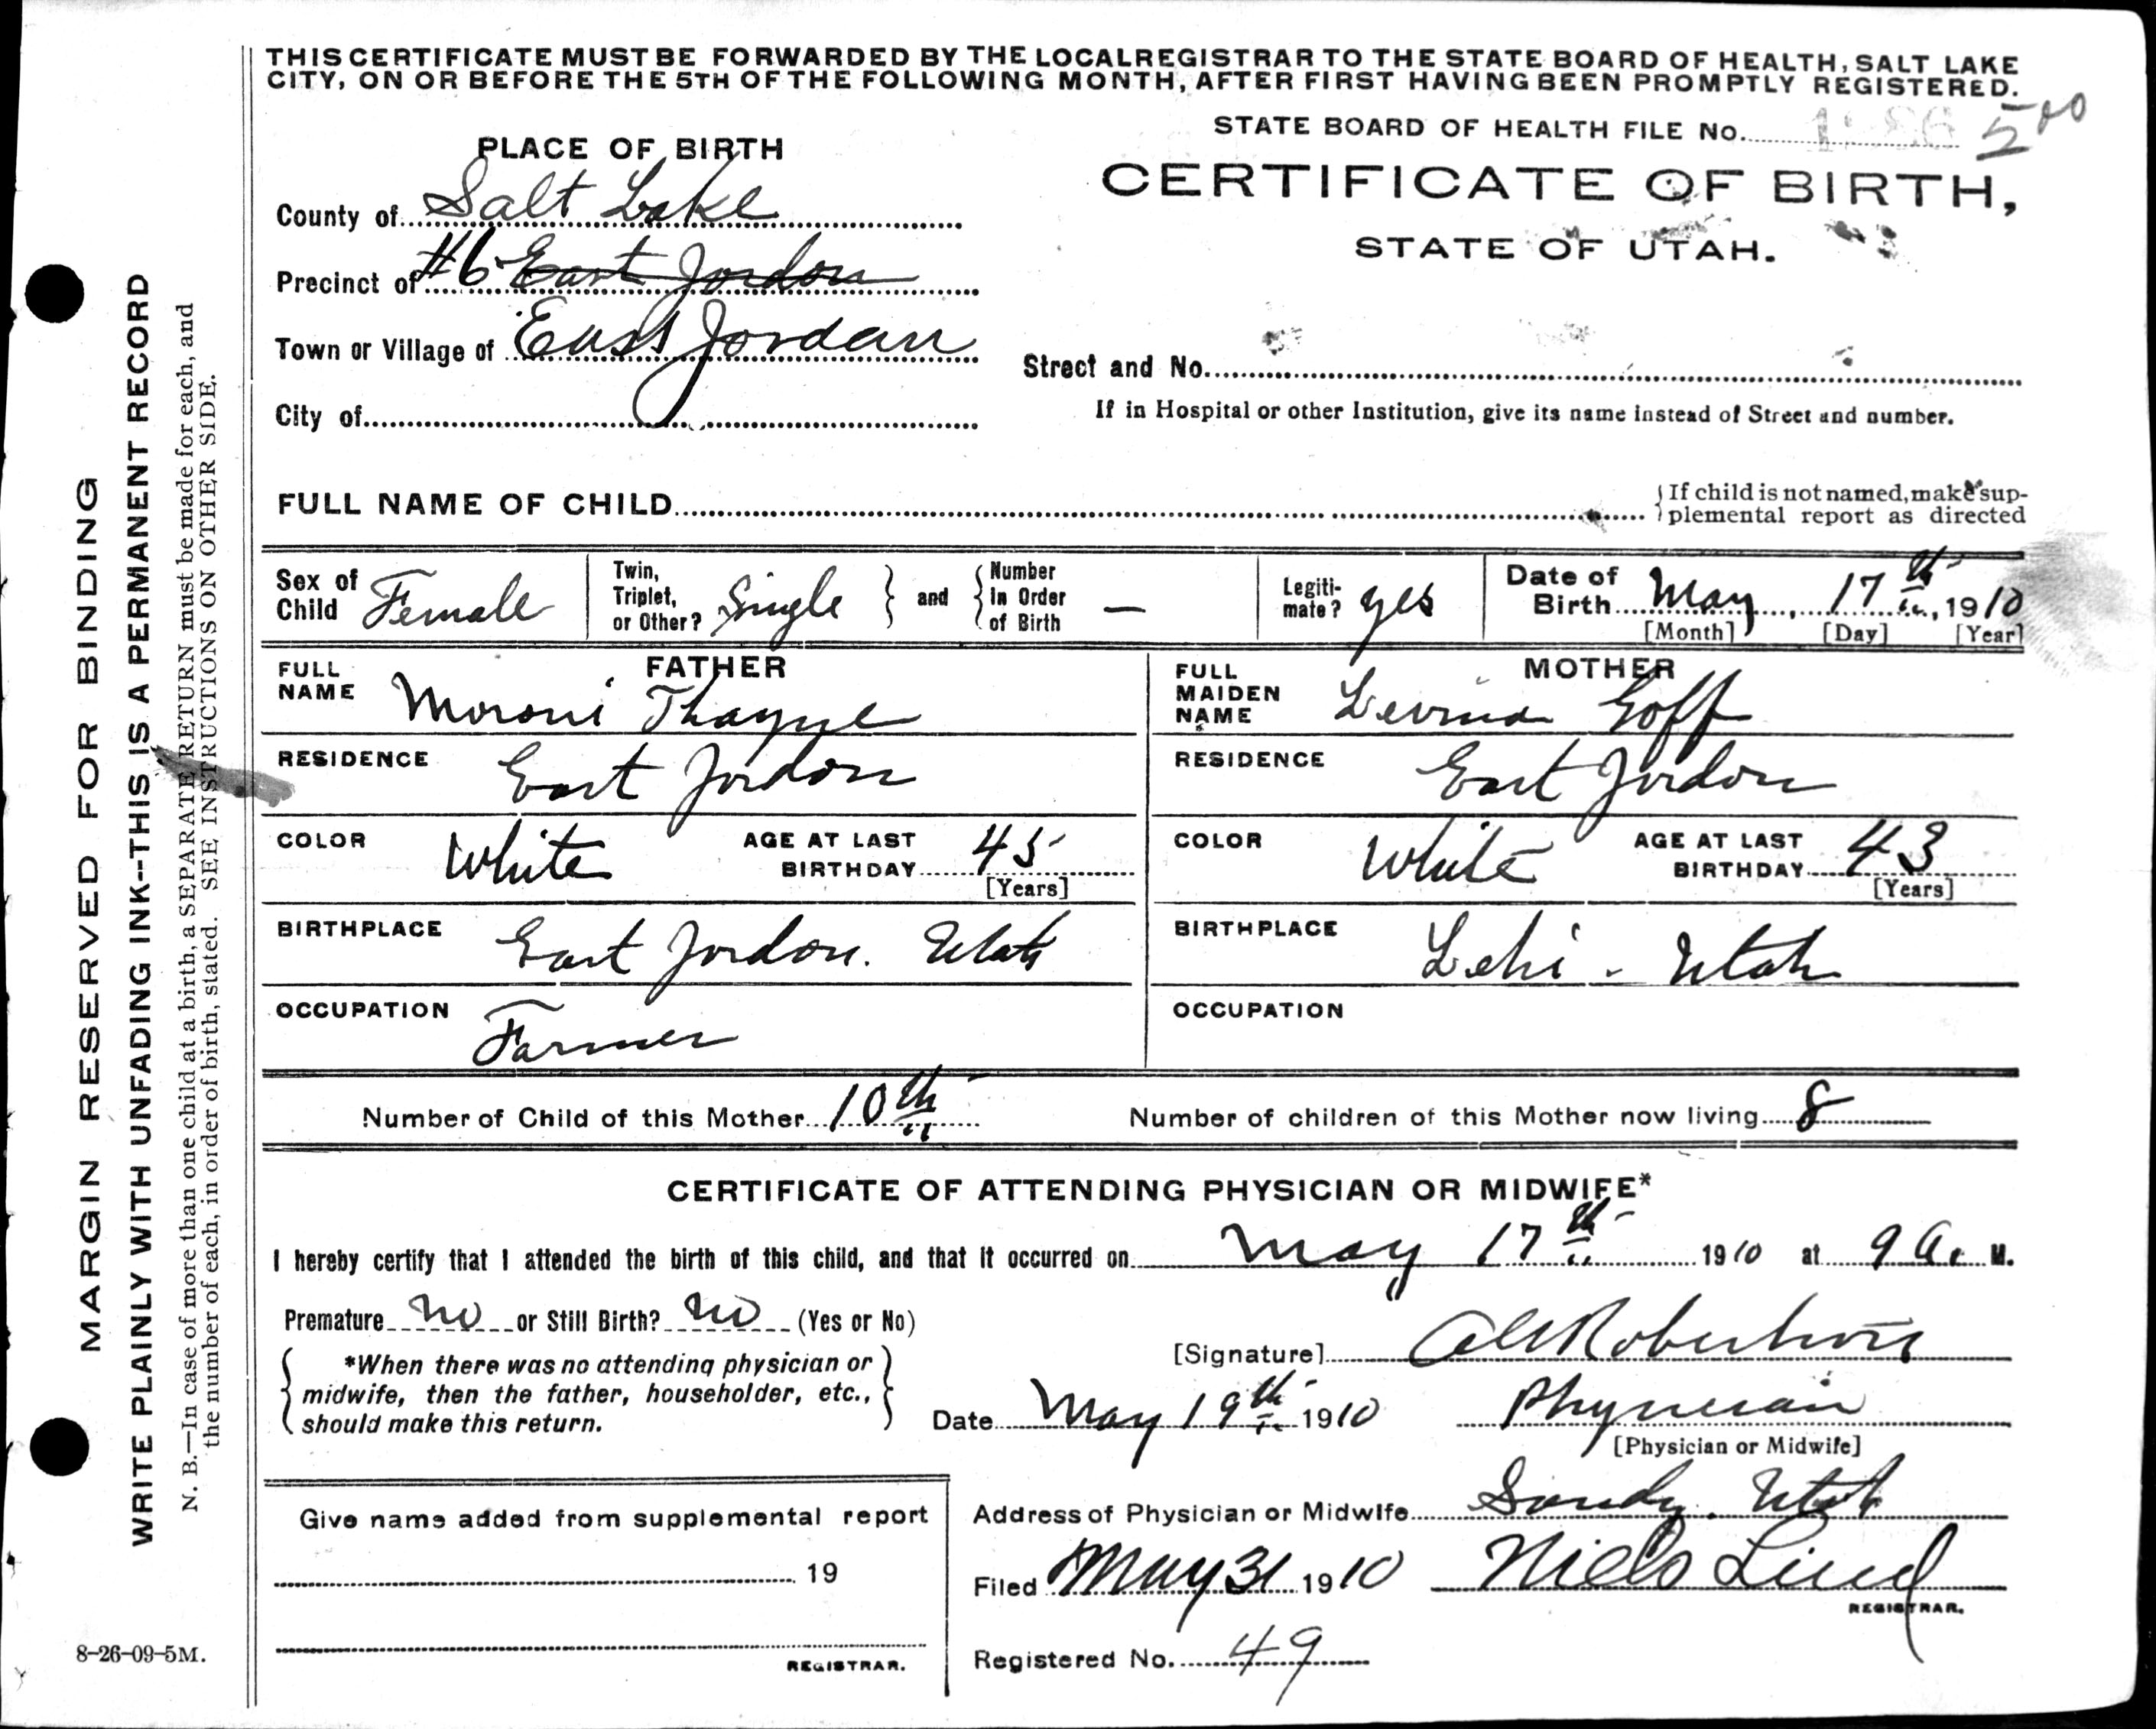 THIS CERTIFICATE MUST BE FORWARDED BY THE LOCAL REGISTRAR TO THE STATE BOARD OF HEALTH, SALT LAKE
CITY, ON OR BEFORE THE 5TH OF THE FOLLOWING MONTH, AFTER FIRST HAVING BEEN PROMPTLY REGISTERED.
STATE BOARD OF HEALTH FILE No. 500
PLACE OF BIRTH
CERTIFICATE OF BIRTH,
STATE OF UTAH.
County of Salt Lake
Precinct of #6 East Jordon
Town or Village of East Jordan
Street and No.
City of
If in Hospital or other Institution, give its name instead of Street and number.
FULL NAME OF CHILD
If child is not named, make sup-
plemental report as directed
Sex of Child Female
Twin, Triplet, or Other? Single
and
Number In Order of Birth —
Legiti-mate? yes
Date of Birth May 17th, 1910
[Month] [Day] [Year]
FATHER
FULL NAME Moroni Thayne
RESIDENCE East Jordon
COLOR White
AGE AT LAST BIRTHDAY 45
[Years]
BIRTHPLACE East Jordon. Utah
OCCUPATION Farmer
MOTHER
FULL MAIDEN NAME Levina Goff
RESIDENCE East Jordon
COLOR White
AGE AT LAST BIRTHDAY 43
[Years]
BIRTHPLACE Lehi - Utah
OCCUPATION
Number of Child of this Mother 10th
Number of children of this Mother now living 8
CERTIFICATE OF ATTENDING PHYSICIAN OR MIDWIFE*
I hereby certify that I attended the birth of this child, and that it occurred on May 17th 1910 at 9 A. M.
Premature no or Still Birth? no (Yes or No)
*When there was no attending physician or
midwife, then the father, householder, etc.,
should make this return.
[Signature] Robertson
Date May 19th 1910
Physician
[Physician or Midwife]
Address of Physician or Midwife Sandy. Utah
Filed May 31 1910 Niels Lind
REGISTRAR.
Registered No. 49
Give name added from supplemental report
19
REGISTRAR.
8-26-09-5M.
MARGIN RESERVED FOR BINDING
WRITE PLAINLY WITH UNFADING INK--THIS IS A PERMANENT RECORD
N. B.—In case of more than one child at a birth, a SEPARATE RETURN must be made for each, and
the number of each, in order of birth, stated. SEE INSTRUCTIONS ON OTHER SIDE.